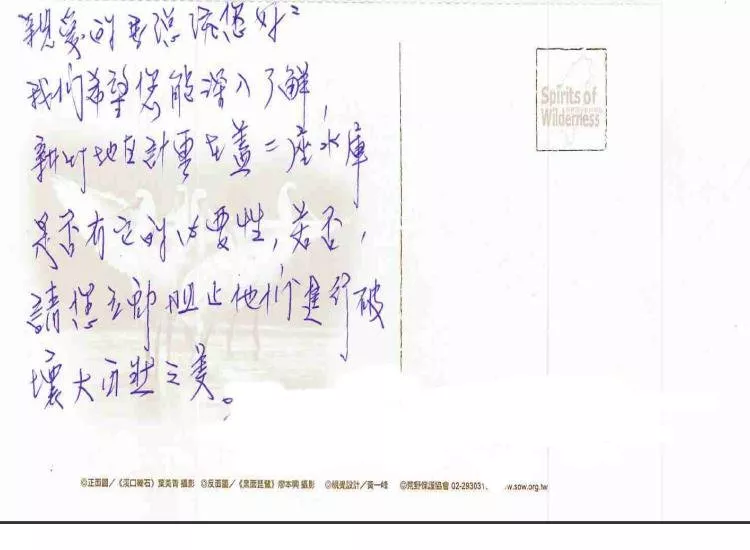 親愛的馬總統您好：
我們希望您能深入了解，
新竹地區計畫在蓋二座水庫
是否有它的必要性，若否，
請您立即阻止他們進行破
壞大自然之美。
Spirits of
Wilderness
◎正面圖／《溪口礫石》葉美青 攝影 ◎反面圖／《黑面琵鷺》廖本興 攝影 ◎視覺設計／黃一峰 ◎荒野保護協會 02-293031 w.sow.org.tw